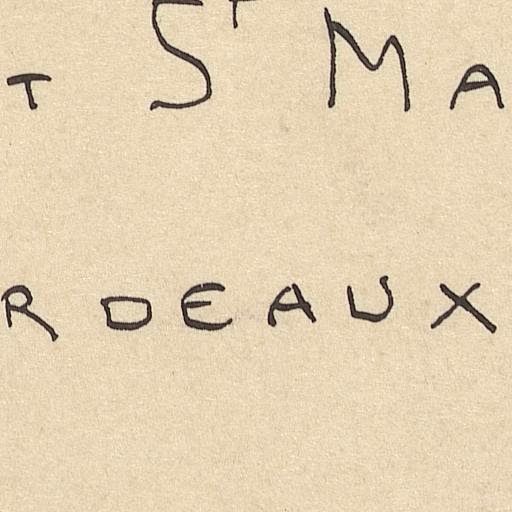 T ST MA
RDEAUX